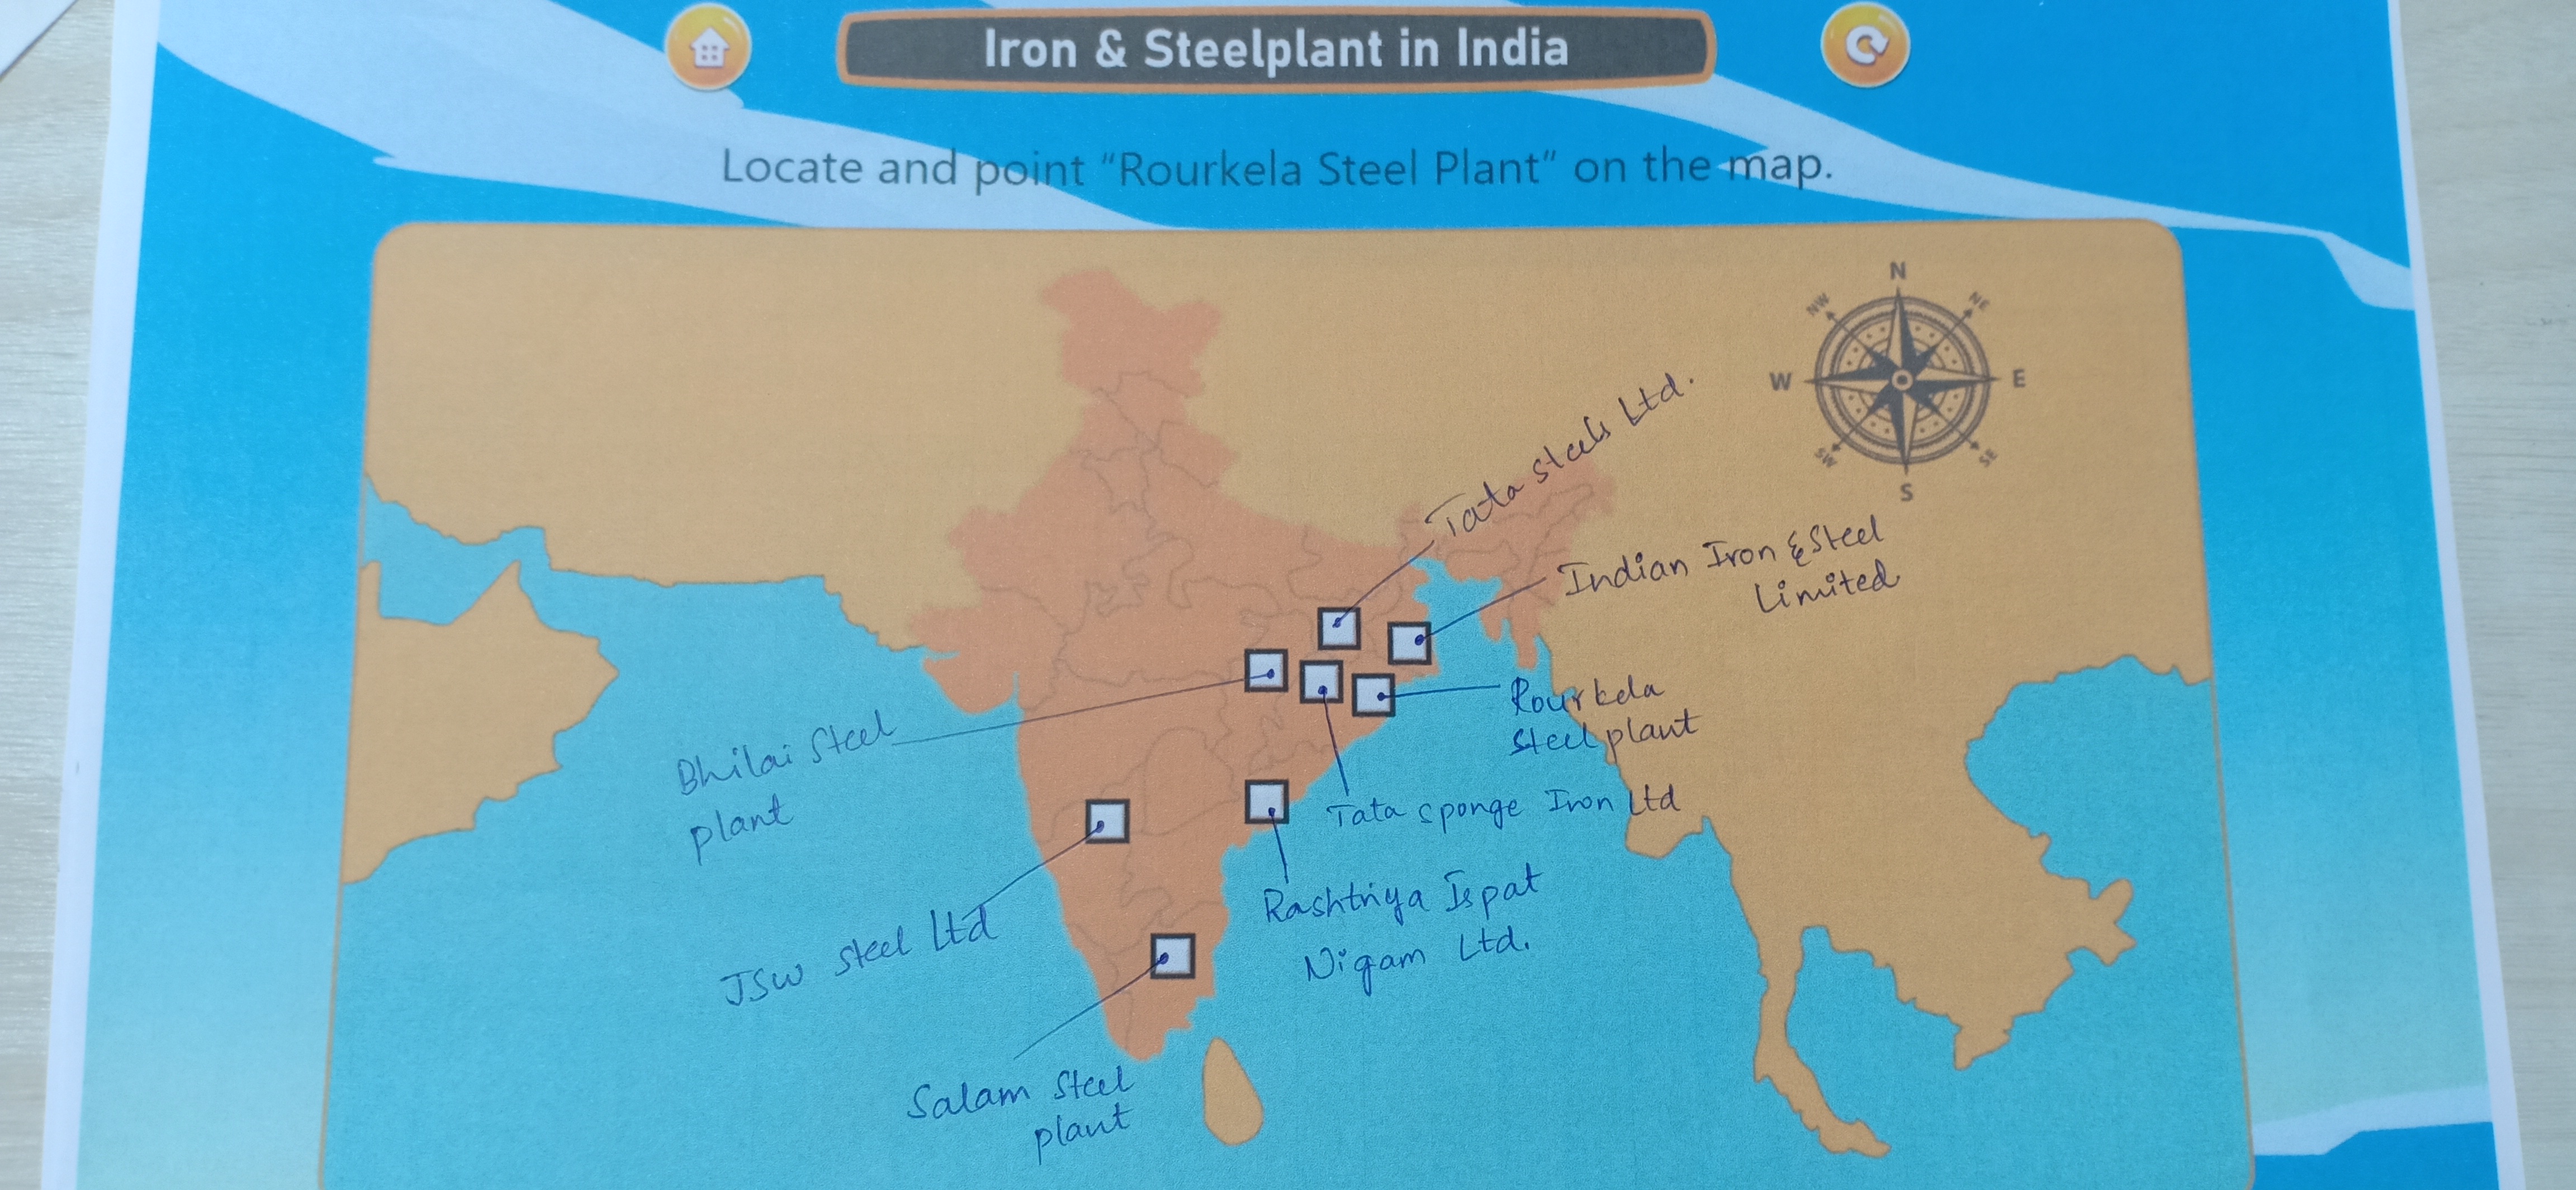 Iron & Steelplant in India
Locate and point "Rourkela Steel Plant" on the map.
N
NW
NE
W
E
SW
SE
S
Tata steels Ltd.
Indian Iron & Steel
Limited
Rourkela
steel plant
Bhilai Steel
plant
Tata sponge Iron Ltd
Rashtriya Ispat
Nigam Ltd.
JSW steel Ltd
Salam Steel
plant